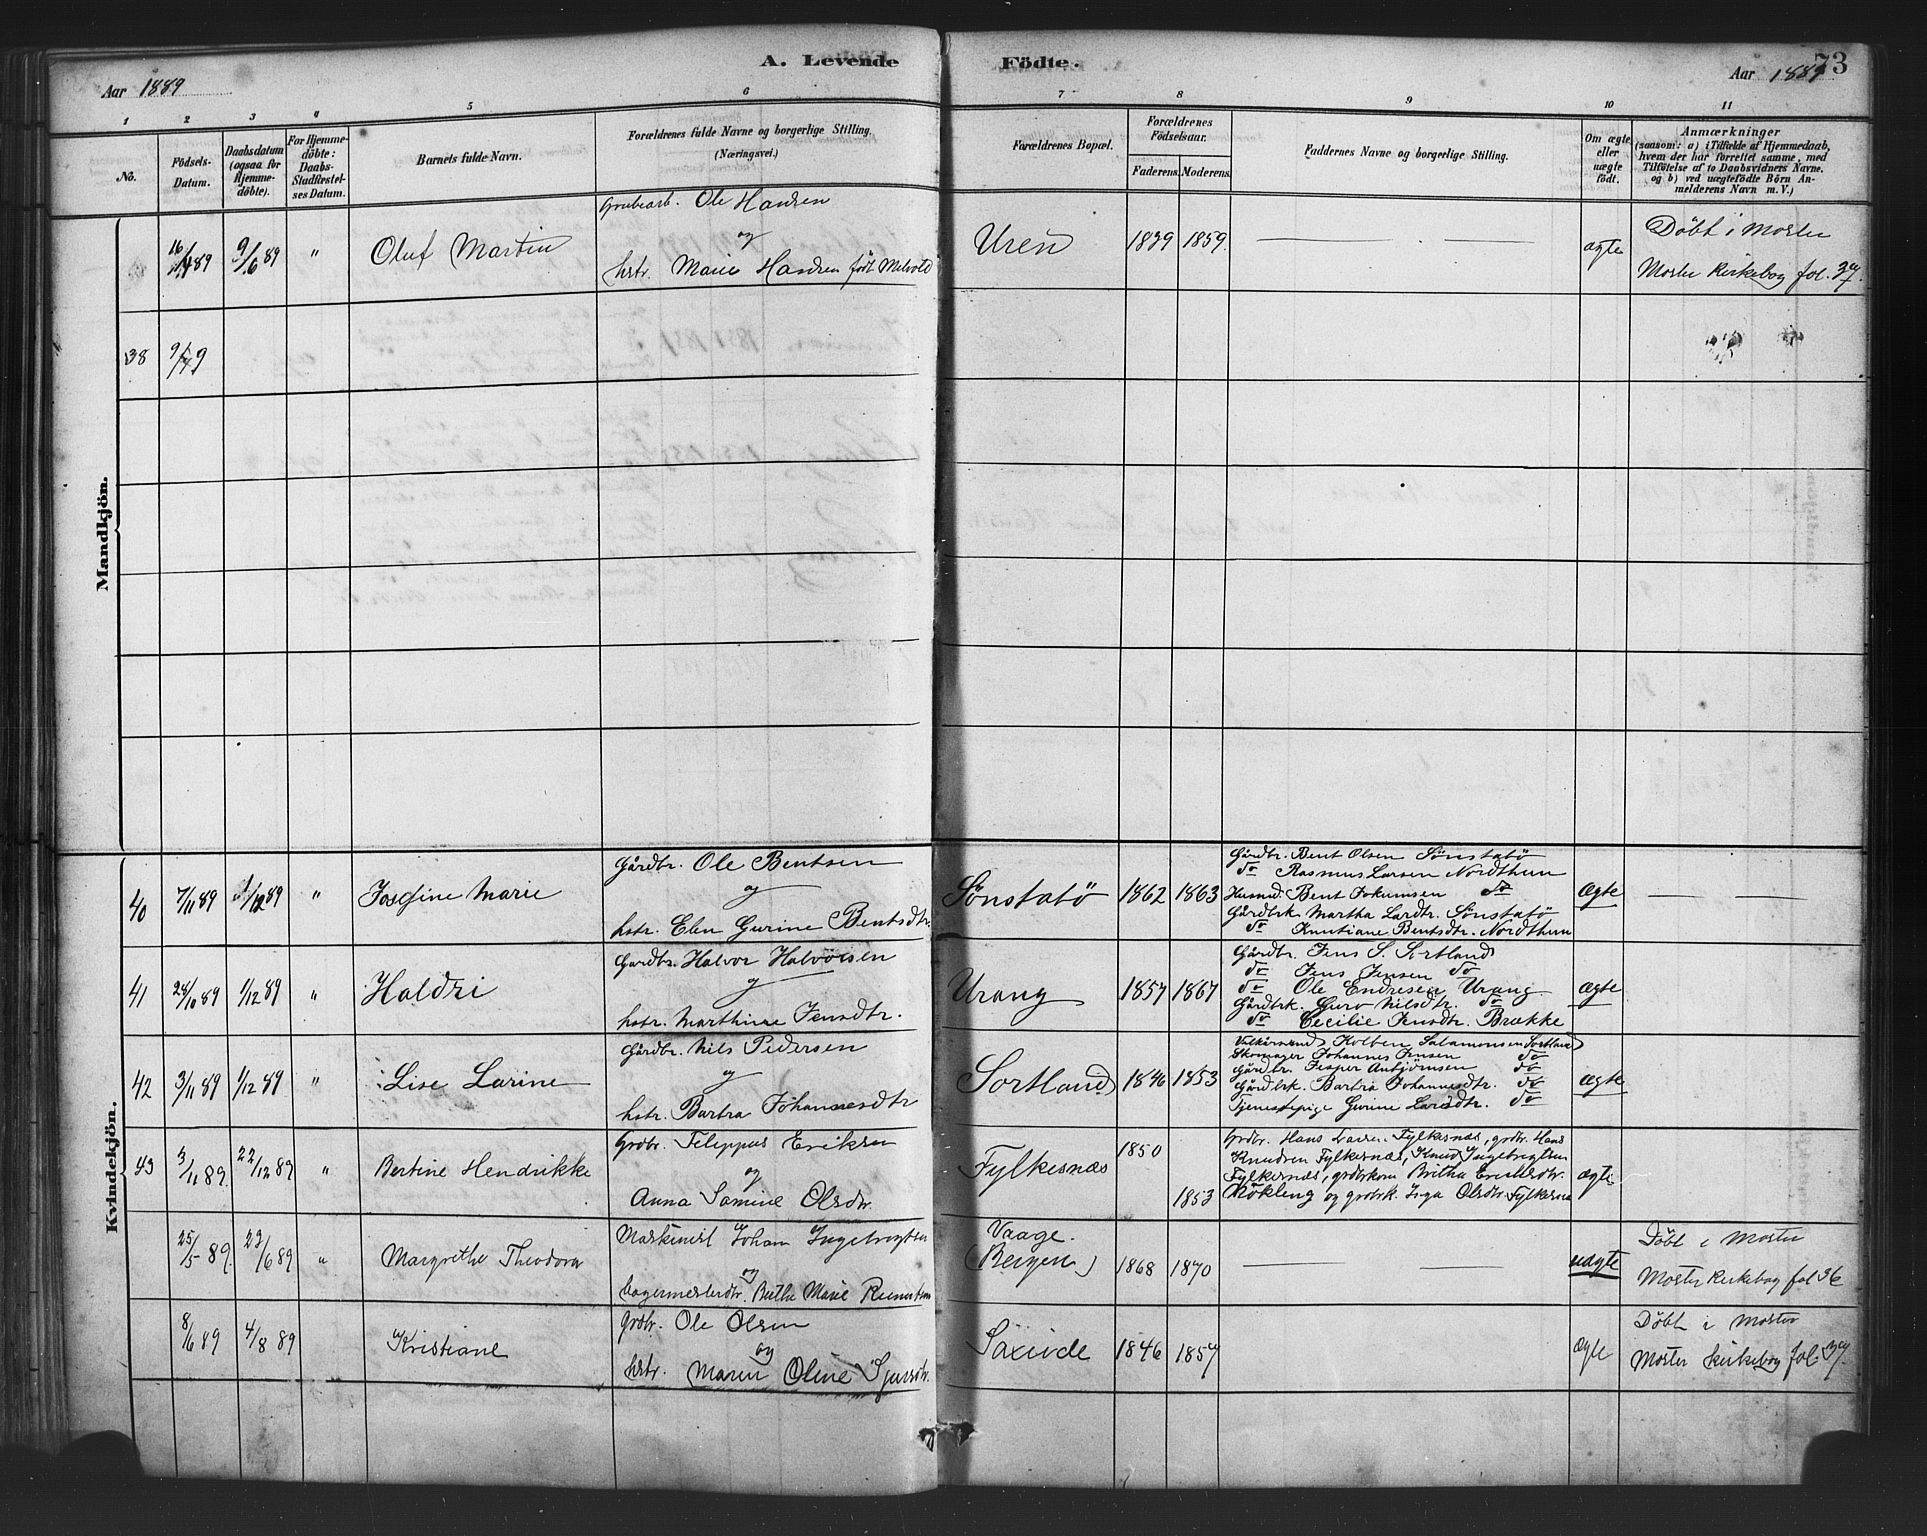 A. Levende Födte.
73
Aar 1889
Aar 1889
1 2 3 4 5 6 7 8 9 10 11
No.
Födsels-Datum.
Daabsdatum (ogsaa for Hjemmedöbte).
For Hjemmedöbte: Daabs-Stadfæstelses Datum.
Barnets fulde Navn.
Forældrenes fulde Navne og borgerlige Stilling. (Næringsvei.)
Forældrenes Bopæl.
Forældrenes Födselsaar.
Faderens. Moderens.
Faddernes Navne og borgerlige Stilling.
Om ægte eller uægte födt.
Anmærkninger
(saasom: a) i Tilfælde af Hjemmedaab,
hvem der har forrettet samme, med
Tilföielse af to Daabsvidners Navne,
og b) ved uægtefödte Börn Anmelderens Navn m. V.)
Mandkjön.
Grubearb. Ole Hansen
16/4 89 9/6 89 " Oluf Martin og Uren 1839 1859. — — ægte Döbt i Moster
hstr. Marie Hansen födt Melvold Moster Kirkebog fol. 37.
38 9/7 9
Kvindekjön.
40 7/11 89 1/12 89 " Josefine Marie
Gårdbr. Ole Bentsen
og
hstr. Elen Gurine Bentsdtr.
Sönstabö 1862 1863
Gårdbr. Bent Olsen Sönstabö
do Rasmus Larsen Nordthun
Husmd. Bent Jokumsen do
Gårdbrk. Martha Larsdtr. Sönstabö
do Kristiane Bentsdtr. Nordthun
Ægte — —
41 28/10 89 1/12 89 " Haldri
Gardbr. Halvor Halvorsen
og
hstr. Marthine Jensdtr.
Urang 1857 1867
Gårdbr. Jens S. Sortland
do Jens Jensen do
do Ole Endresen Urang
Gårdbrk. Guro Nilsdtr. do
do Cecilie Jensdtr. Brække
Ægte
42 3/11 89 1/12 89 " Lise Larine
Gårdbr. Nils Pedersen
og
hstr. Bartra Johannesdtr
Sortland 1846 1853
Kolben Salamonsen Sortland
Skomager Johannes Jensen do
Gårdbr. Jesper Anbjörnsen do
Gårdbrk. Bartra Johannesdtr. do
Tjenestepige Gurine Larsdtr. do
Ægte
43 3/11 89. 22/12 89 " Bertine Hendrikke
Grdbr. Filippus Eriksen
og
Anna Samine Olsdtr.
Fylkesnæs 1850 1853
Grdbr. Hans Larsen Fylkesnæs, grdbr. Hans
Knudsen Fylkesnæs, Knud Ingebrigtsen
Fylkesnæs, grdbrkone Britha Eriksdtr.
Rökling og grdbrk. Inga Olsdtr. Fylkesnæs
ægte
25/5 89. 23/6 89 " Margrethe Theodora
Maskinist Johan Ingebrigtsen
og
Bagermesterdtr. Berthe Marie
Vaage.
(Bergen) 1868 1870 — — uægte
Döbt i Moster
Moster Kirkebog fol 36
8/6 89 4/8 89 Kristiane
grdbr. Ole Olsen
og
hstr. Maren Oline Sjursdtr.
Saxivde 1846 1857 ægte
Döbt i Moster
Moster Kirkebog fol. 37.